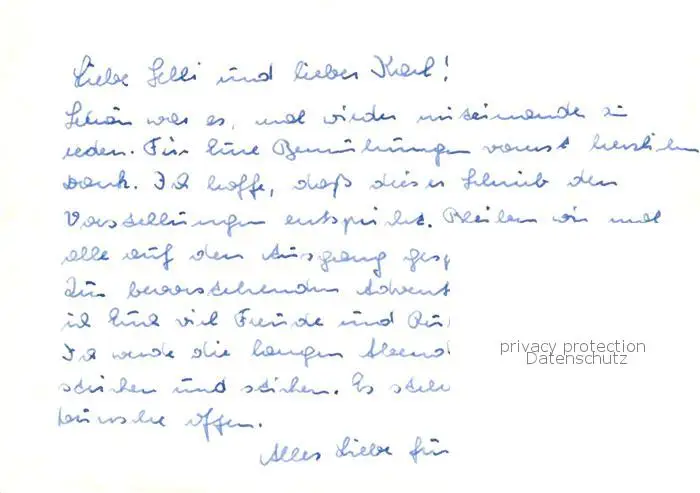 Liebe Lilli und lieber Karl!
Schön war es, mal wieder miteinander zu
reden. Für Eure Bemühungen vorerst herzlichen
Dank. Ich hoffe, daß dieser Schrieb den
Vorstellungen entspricht. Bleiben wir mal
alle auf den Ausgang gesp
Zur bevorstehenden Advent
ich Euch viel Freude und Ru
Ich werde die langen Abend
stricken und sticken. Es
wünsche offen.
Alles Liebe für
privacy protection
Datenschutz